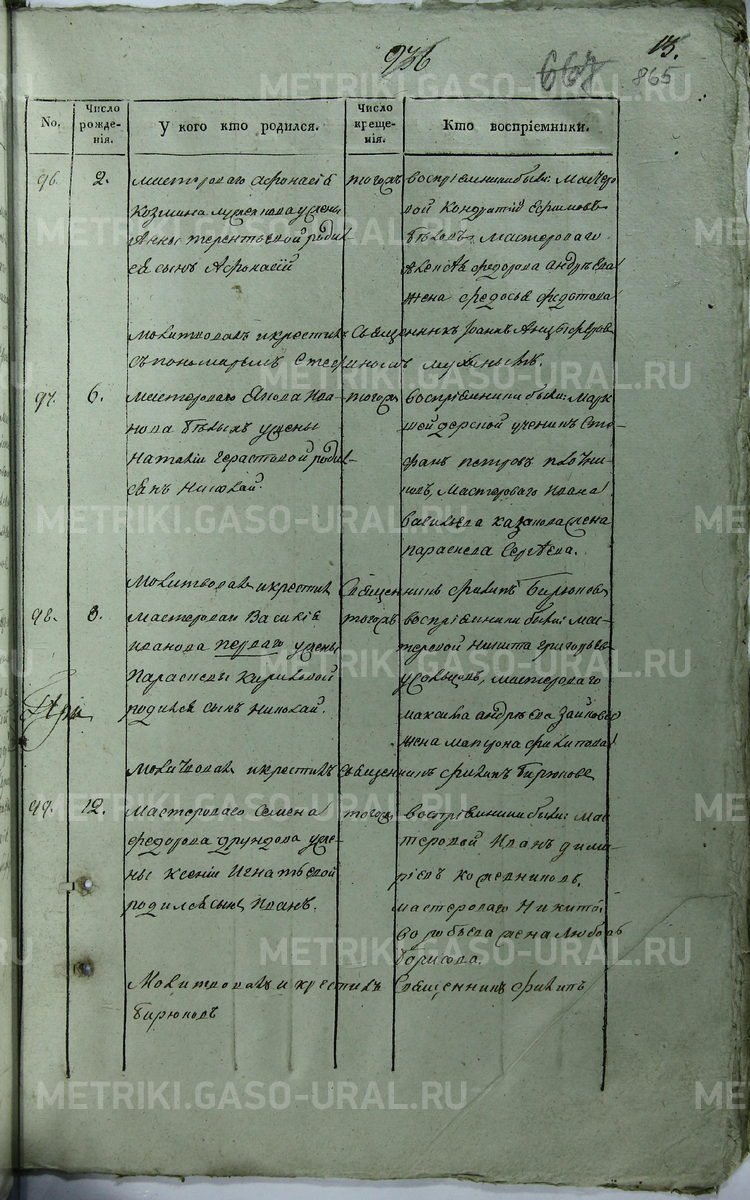 936
667
13.
865
No.
Число рожденія.
У кого кто родился.
Число крещенія.
Кто воспріемники.
96.
2.
мастероваго Афонасія
Козмина
Анны терентьевой роди
ся сынъ Афонасій
тогожъ
воспріемники были: масте
вой Кондратій Ефимовъ
мастероваго
федорова андреева
жена федосья федотова
молитвовалъ и крестилъ Священникъ Іоаннъ
съ пономаремъ Стефаномъ
97.
6.
мастероваго Ива
нова Белыхъ у жены
Наталіи роди
сынъ Николай.
тогожъ
воспріемники были: марк
шейдерской ученикъ Сте
фанъ петровъ
мастероваго ивана
васильева казанова жена
параскева Сергѣева.
молитвовалъ и крестилъ Священникъ филипъ Бирюковъ
98.
8.
мастероваго Василія
иванова перваго у жены
Параскевы Кириловой
родился сынъ Николай.
тогожъ
воспріемники были: мас
теровой Никита григорьевъ
усольцовъ, мастероваго
максима андреева
жена матрона филипова
молитвовалъ и крестилъ Священникъ филипъ Бирюковъ
99.
12.
мастероваго Семена
федорова друндова у же
ны Ксеніи Игнатьевой
родился сынъ Иванъ.
тогожъ
воспріемники были: мас
теровой Иванъ дмит
ріевъ кожевниковъ,
мастероваго Никиты
воробьева жена любовь
борисова.
Молитвовалъ и крестилъ Священникъ филипъ
Бирюковъ
METRIKI.GASO-URAL.RU